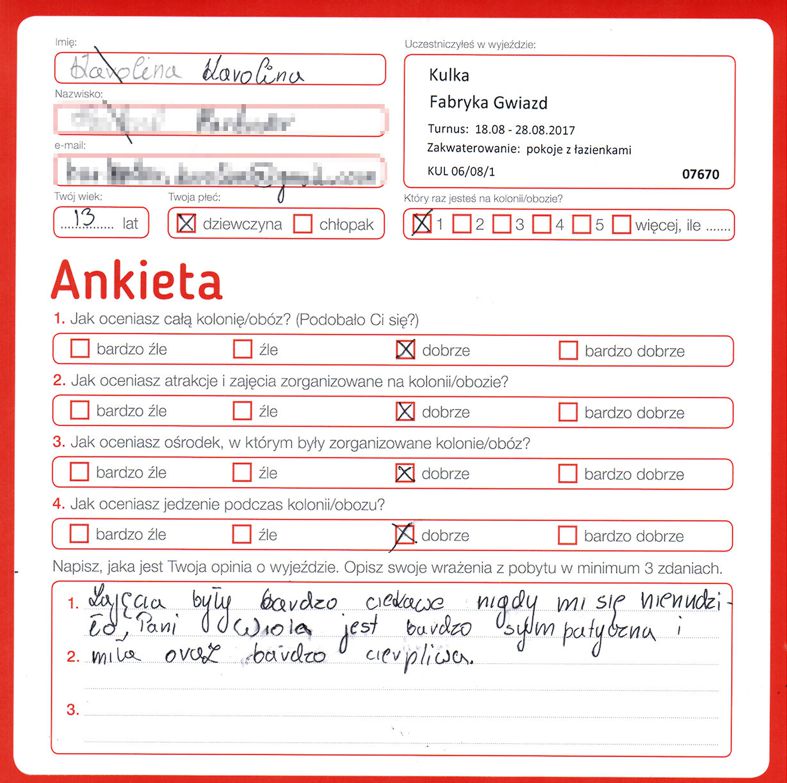 Imię:
Karolina Karolina
Nazwisko:
e-mail:
Twój wiek:
13 lat
Twoja płeć:
dziewczyna chłopak
Uczestniczyłeś w wyjeździe:
Kulka
Fabryka Gwiazd
Turnus: 18.08 - 28.08.2017
Zakwaterowanie: pokoje z łazienkami
KUL 06/08/1 07670
Który raz jesteś na kolonii/obozie?
1 2 3 4 5 więcej, ile .......
Ankieta
1. Jak oceniasz całą kolonię/obóz? (Podobało Ci się?)
bardzo źle źle dobrze bardzo dobrze
2. Jak oceniasz atrakcje i zajęcia zorganizowane na kolonii/obozie?
bardzo źle źle dobrze bardzo dobrze
3. Jak oceniasz ośrodek, w którym były zorganizowane kolonie/obóz?
bardzo źle źle dobrze bardzo dobrze
4. Jak oceniasz jedzenie podczas kolonii/obozu?
bardzo źle źle dobrze bardzo dobrze
Napisz, jaka jest Twoja opinia o wyjeździe. Opisz swoje wrażenia z pobytu w minimum 3 zdaniach.
1. Zajęcia były bardzo ciekawe nigdy mi się nienudzi-
ło, Pani Wiola jest bardzo sympatyczna i
2. miła oraz bardzo cierpliwa.
3.